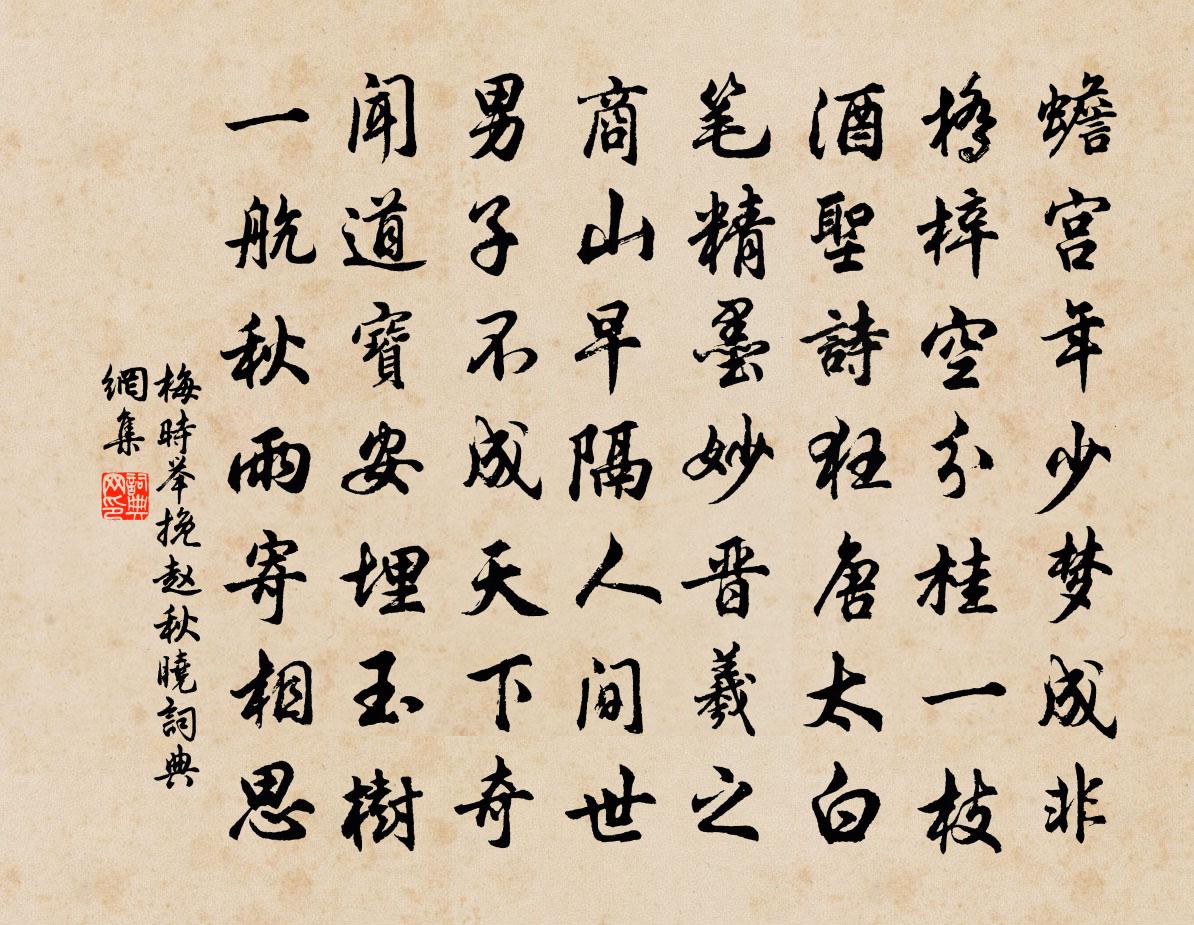 蟾宫年少梦成非
橋梓空分桂一枝
酒聖詩狂唐太白
笔精墨妙晋羲之
商山早隔人间世
男子不成天下奇
闻道寶安埋玉樹
一航秋雨寄相思
梅時举挽赵秋曉詞典
網集
詞典
网印